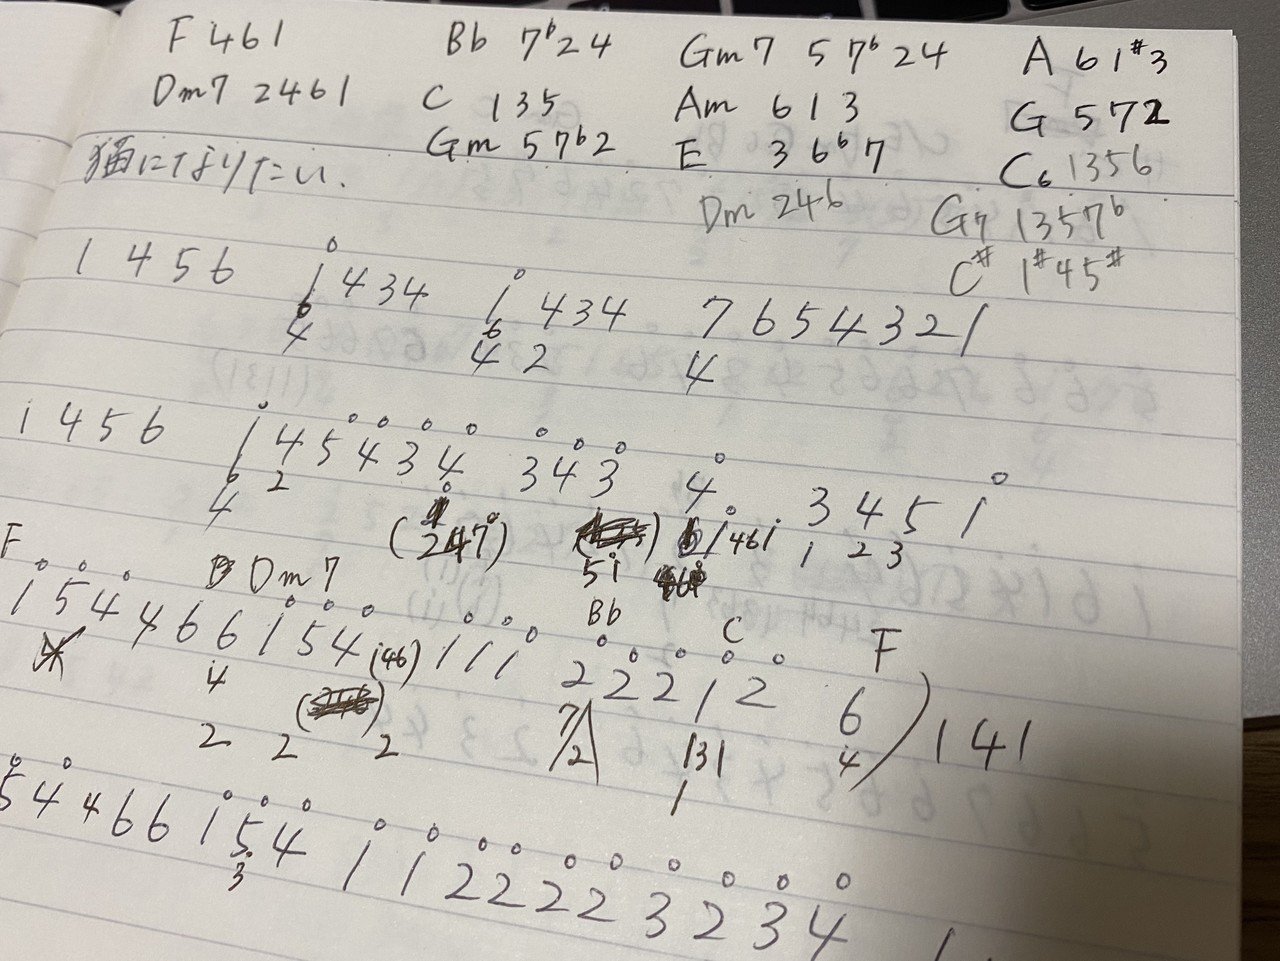 F 461 Bb 7b24 Gm7 57b24 A 61#3
Dm7 2461 C 135 Am 613 G 572
Gm 57b2 E 36b7 C6 1356
猫になりたい.
Dm 246 G7 1357b
C# 1#45#
1 4 5 6 1 4 3 4 1 4 3 4 7 6 5 4 3 2 1
6 6
4 4 2 4
1 4 5 6 1 4 5 4 3 4 3 4 3 4. 3 4 5 1
6 2
4 (247) 1 461 1 2 3
51
F Dm7 Bb C F
1 5 4 4 6 6 1 5 4 (146) 1 1 1 2 2 2 1 2 6 ) 1 4 1
4 7 131 4
2 2 2 2 1
5 4 4 6 6 1 5 4 1 1 2 2 2 2 3 2 3 4
3